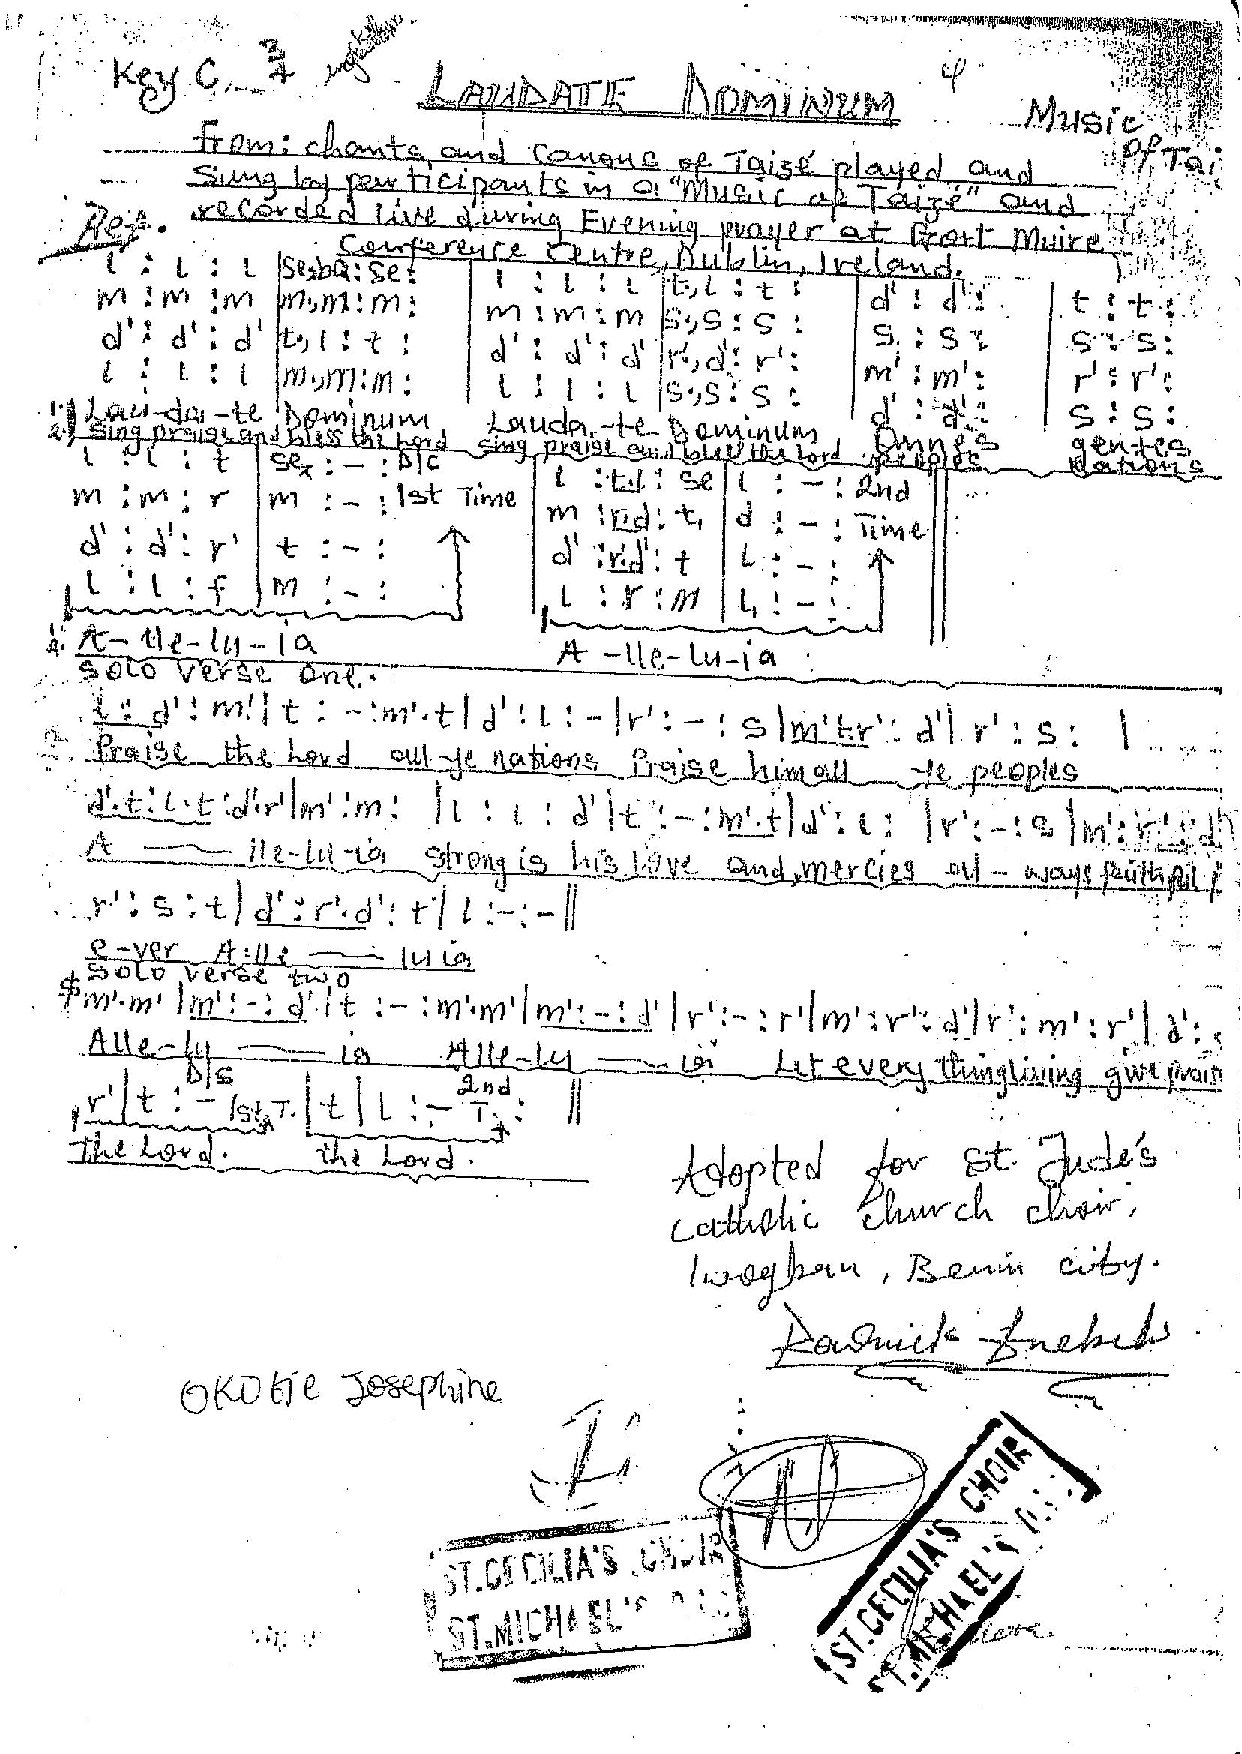 Key C 3/4
LAUDATE DOMINUM
Music
of Tai
from: chants and Canons of Taizé played and
Sung by participants in a "Music of Taizé" and
recorded live during Evening prayer at Gort Muire
Conference Centre, Dublin, Ireland.
Ref.
l : l : l |se,ba:se: | l : l : l |t,l : t : | d' : d': | t : t:
m : m : m |m,m:m: | m : m : m |s,s : s : | s : s : | s : s:
d' : d' : d' |t,l : t : | d' : d' : d' |r',d': r': | m' : m': | r' : r':
l : l : l |m,m:m: | l : l : l |s,s : s : | d' : d': | s : s:
1. Lau-da-te Dominum Lauda-te Dominum Omnes gentes
2. Sing praise and bless the Lord sing praise and bless the Lord peoples nations
l : l : t | se : - : D/C | l : t.l : se | l : - : 2nd
m : m : r | m : - : 1st Time | m : r.d : t, | d : - : Time
d' : d' : r' | t : - : | d' : r'.d' : t | l : - :
l : l : f | m : - : | l : r : m | l, : - :
A-lle-lu-ia A-lle-lu-ia
Solo Verse One.
l : d' : m' | t : - :m'.t | d' : l : - |r' : - : s |m'.t.r' : d' | r' : s : |
Praise the Lord all ye nations Praise him all ye peoples
d'.t : l.t : d'.r' |m' : m : | l : l : d' | t : - : m'.t | d' : l : | r' : - : s | m' : r' : d'
A lle-lu-ia strong is his love and mercies al-ways faithful
r' : s : t | d' : r'.d' : t | l : - : - ||
e-ver A-lle lu ia
Solo verse two
$ m'.m' | m' : - : d' | t : - : m'.m' | m' : - : d' | r' : - : r' | m' : r' : d' | r' : m' : r' | d' :
Alle-lu ia Alle-lu ia Let every thing living give prais
D/S
r' | t : - 1st T. | t | l : - 2nd T. : ||
the Lord. the Lord.
Adopted for St. Jude's
Catholic church choir,
, Benin city.
OKOTIE Josephine
ST.CECILIA'S CHOIR
ST.MICHAEL'S
ST.CECILIA'S CHOIR
ST.MICHAEL'S